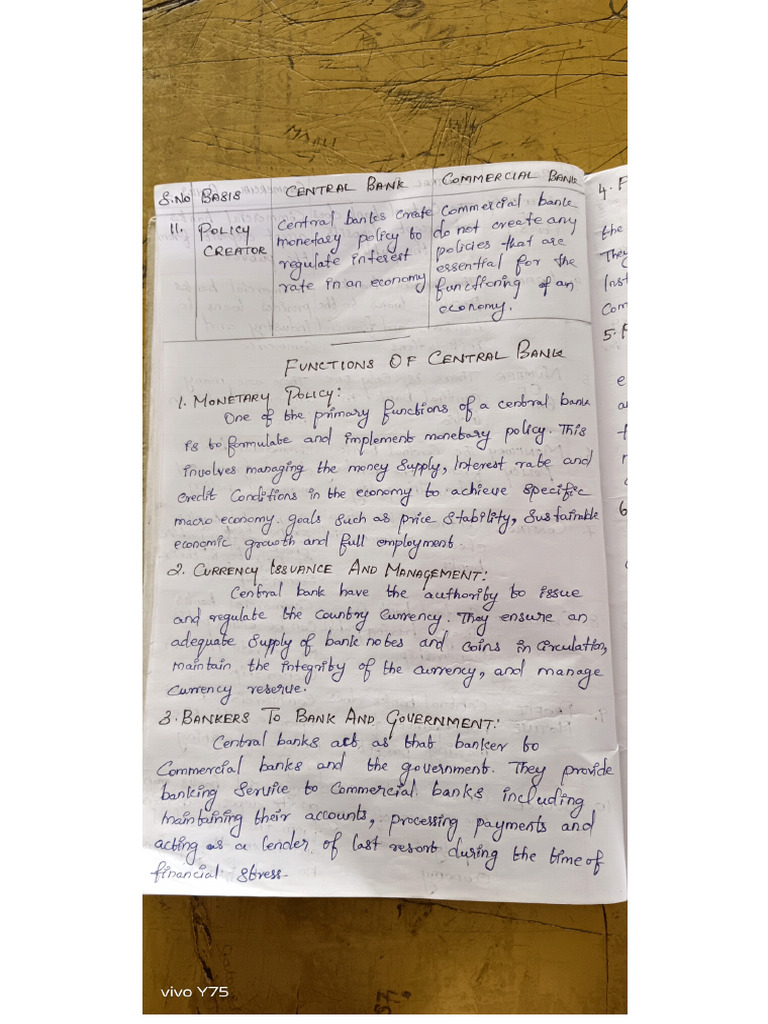 S.No BASIS CENTRAL BANK COMMERCIAL BANK
11. POLICY CREATOR Central banks create monetary policy to regulate interest rate in an economy Commercial bank do not create any policies that are essential for the functioning of an economy.
FUNCTIONS OF CENTRAL BANK
1. MONETARY POLICY:
One of the primary functions of a central bank
is to formulate and implement monetary policy. This
involves managing the money supply, Interest rate and
credit Conditions in the economy to achieve specific
macro economy. goals such as price stability, Sustainable
economic growth and full employment.
2. CURRENCY ISSUANCE AND MANAGEMENT:
Central bank have the authority to issue
and regulate the country currency. They ensure an
adequate supply of bank notes and coins in circulation,
maintain the integrity of the currency, and manage
currency reserve.
3. BANKERS TO BANK AND GOVERNMENT:
Central banks act as that banker to
Commercial banks and the government. They provide
banking service to commercial banks including
maintaining their accounts, processing payments and
acting as a lender of last resort during the time of
financial stress.
4.
the
They
Inst
Com
5.
6
vivo Y75